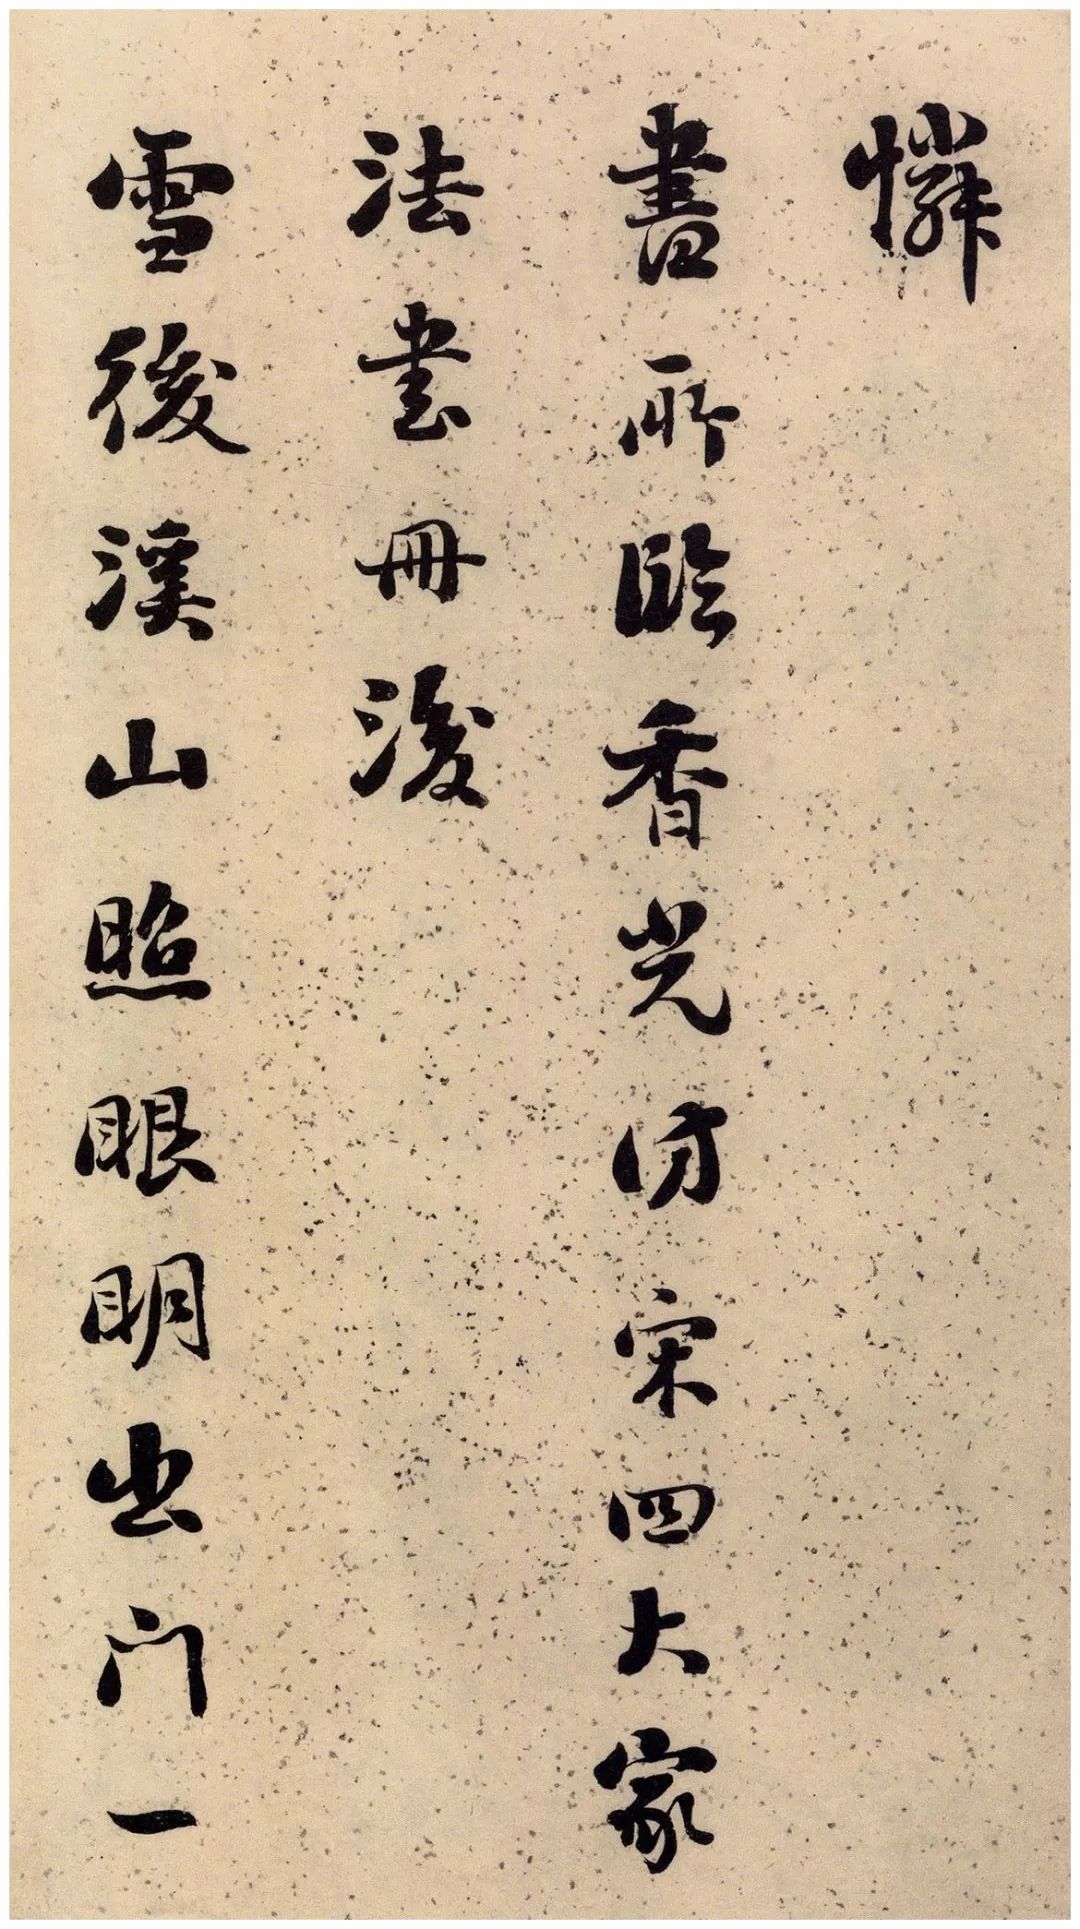 憐
書所臨香光仿宋四大家
法書冊後
雪後溪山照眼明出门一